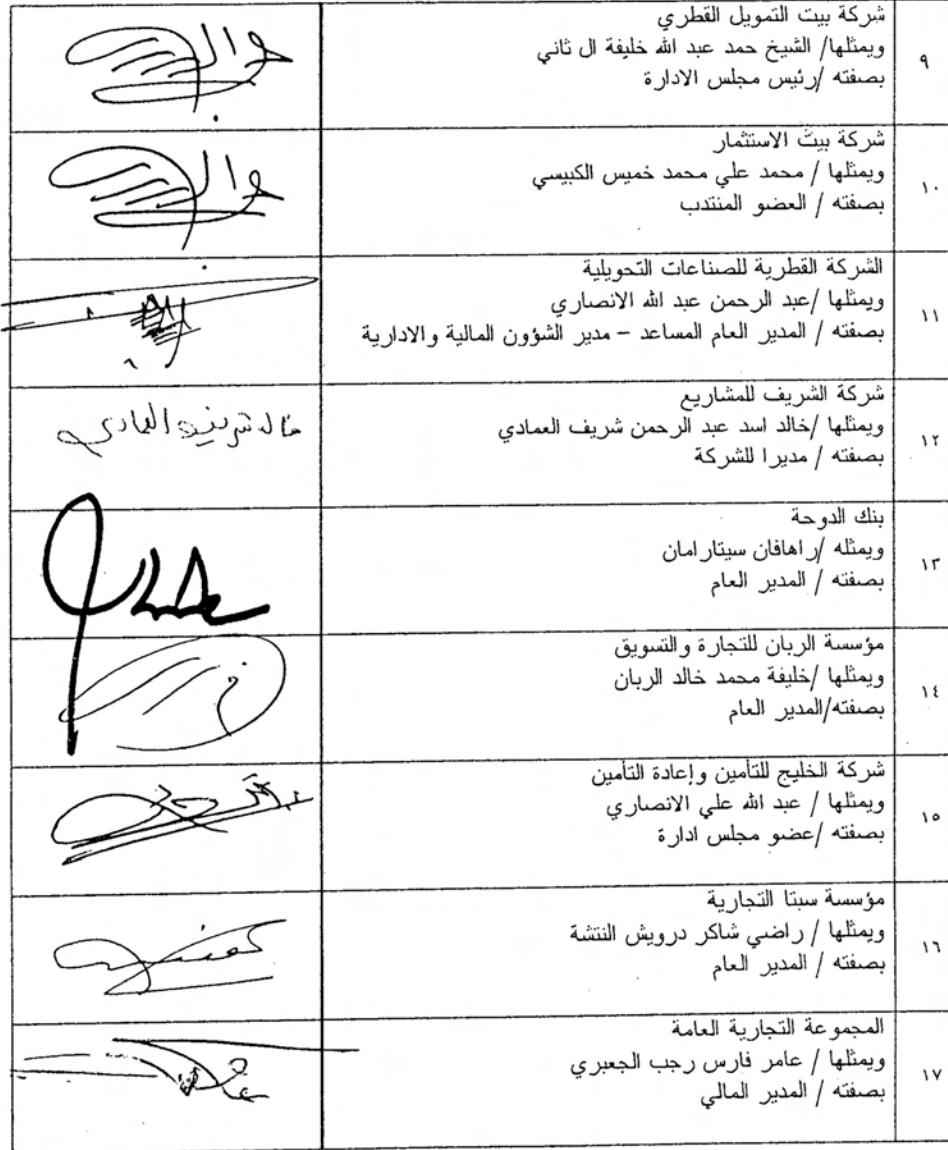 ٩
شركة بيت التمويل القطري
ويمثلها/ الشيخ حمد عبد الله خليفة ال ثاني
بصفته /رئيس مجلس الادارة
١٠
شركة بيت الاستثمار
ويمثلها / محمد علي محمد خميس الكبيسي
بصفته / العضو المنتدب
١١
الشركة القطرية للصناعات التحويلية
ويمثلها /عبد الرحمن عبد الله الانصاري
بصفته / المدير العام المساعد – مدير الشؤون المالية والادارية
١٢
شركة الشريف للمشاريع
ويمثلها /خالد اسد عبد الرحمن شريف العمادي
بصفته / مديرا للشركة
خالد شريف العمادي
١٣
بنك الدوحة
ويمثله /راهافان سيتارامان
بصفته / المدير العام
١٤
مؤسسة الربان للتجارة والتسويق
ويمثلها /خليفة محمد خالد الربان
بصفته/المدير العام
١٥
شركة الخليج للتأمين وإعادة التأمين
ويمثلها / عبد الله علي الانصاري
بصفته /عضو مجلس ادارة
١٦
مؤسسة سبتا التجارية
ويمثلها / راضي شاكر درويش النتشة
بصفته / المدير العام
١٧
المجموعة التجارية العامة
ويمثلها / عامر فارس رجب الجعبري
بصفته / المدير المالي